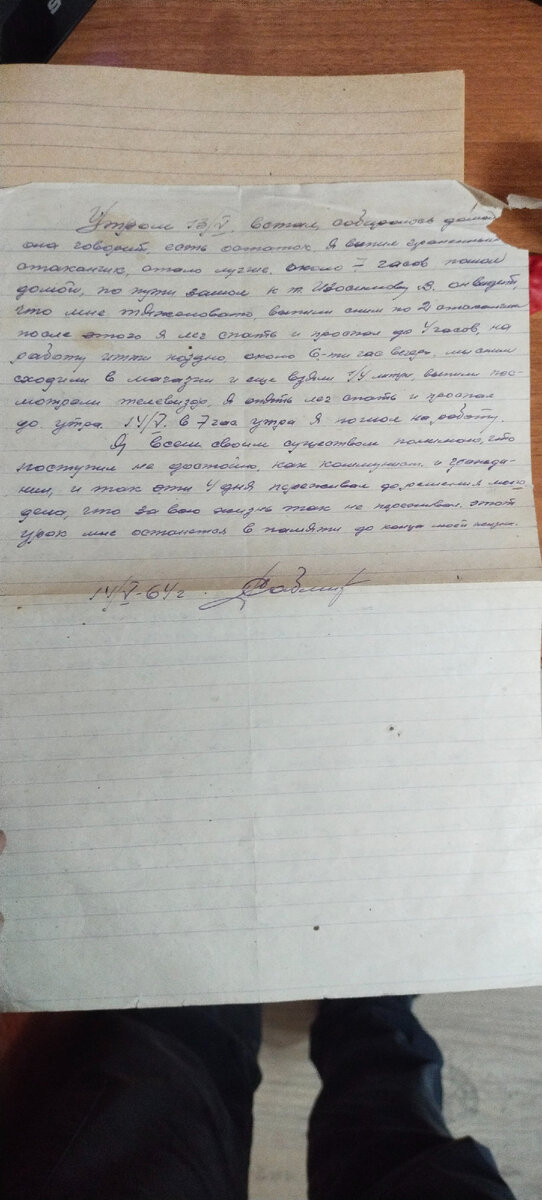 Утром 13/V. встал, собираюсь домой
она говорит есть остаток. Я выпил
стаканчик, стало лучше. около 7 часов пошол
домой, по пути зашол к т. Изосимову В. он видит,
что мне тяжоловато, выпили с ним по 2 стаканчика
после этого я лег спать и проспал до 4 часов, на
работу итти поздно, около 6-ти час вечера, мы с ним
сходили в магазин и еще взяли 1/4 литра, выпили пос-
мотрели телевизор. Я опять лег спать и проспал
до утра. 14/V. в 7 час утра я пошол на работу.
Я, всем своим существом понимаю, что
поступил не достойно, как коммунист и гражда-
нин, и так эти 4 дня переживал до решения моего
дела, что за всю жизнь так не переживал. этот
урок мне останется в памяти до конца моей жизни.
14/V-64 г.